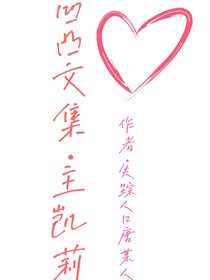 凹凸文集·主凯莉
作者·失踪人口唐某人